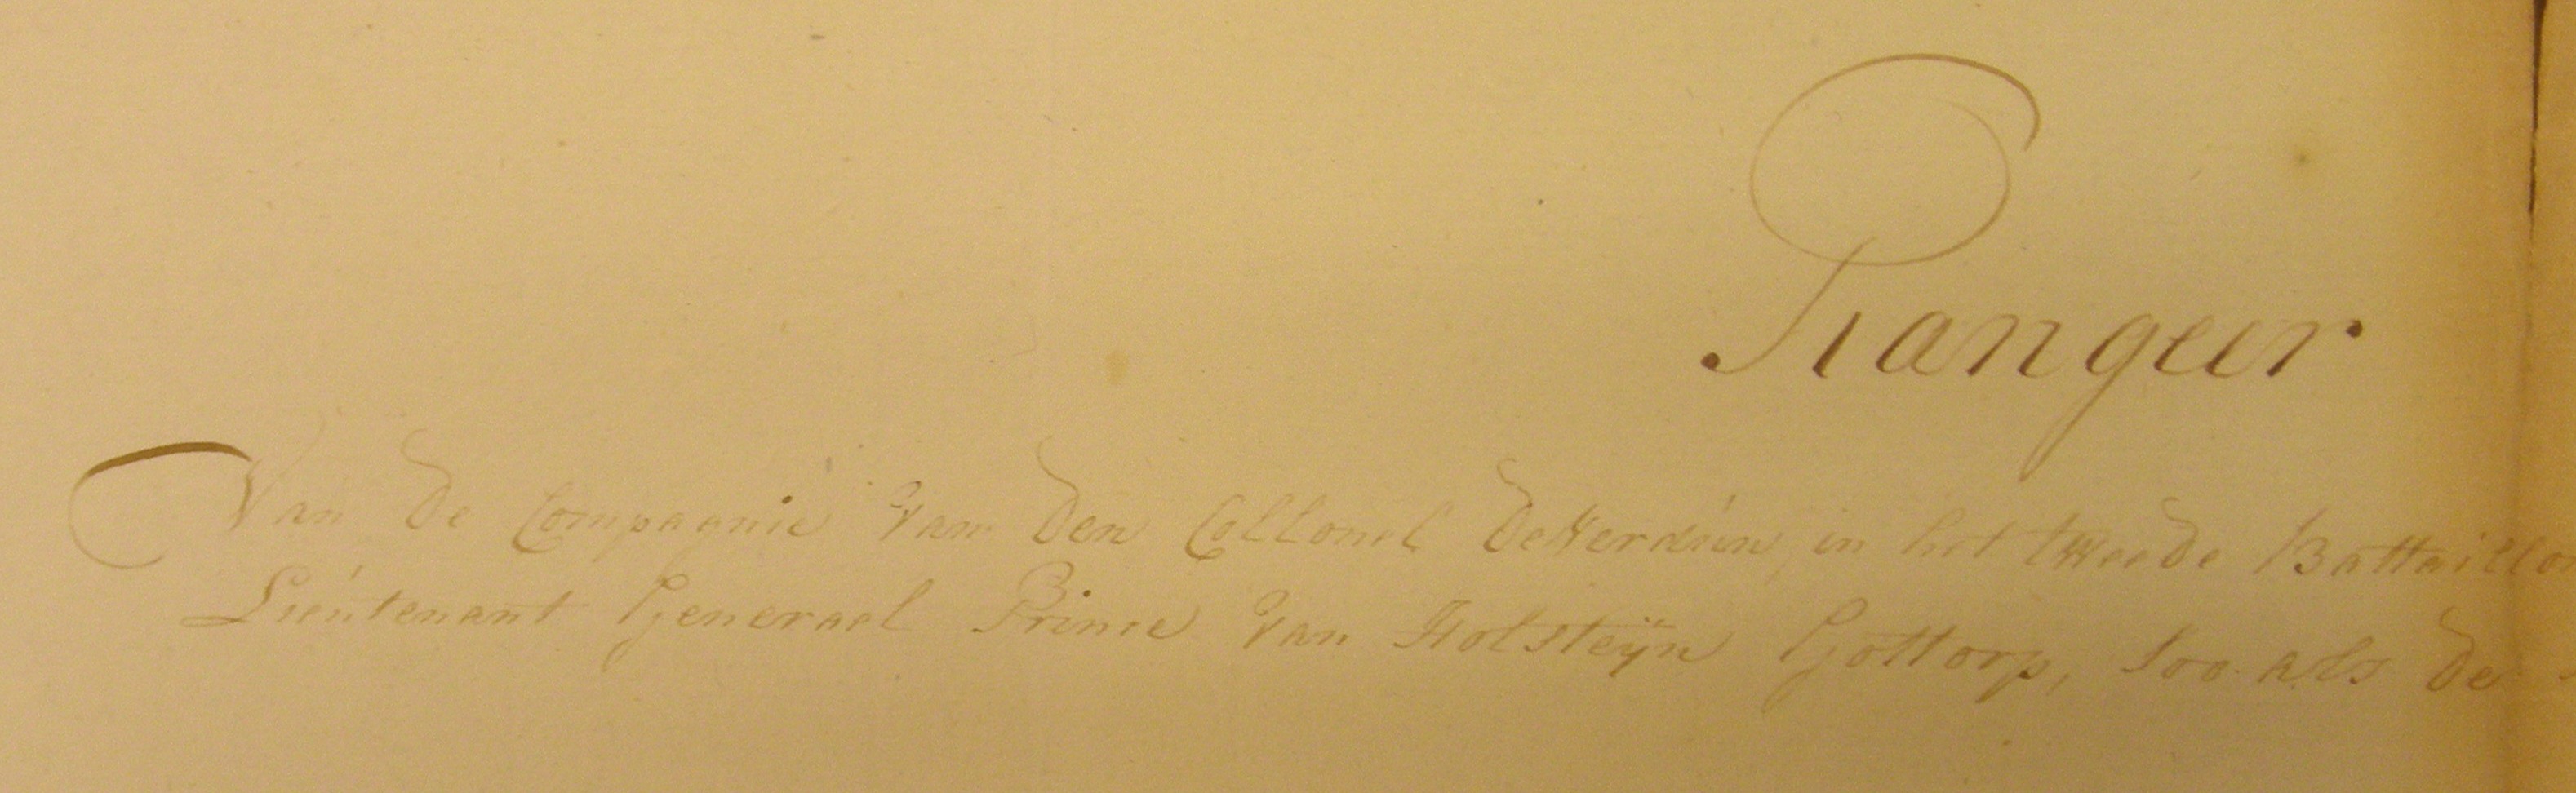 Rangeer
Van de Compagnie van den Collonel in het tweede Battaillon
Lieutenant Generael Prince van Holsteijn Gottorp, Soo als de